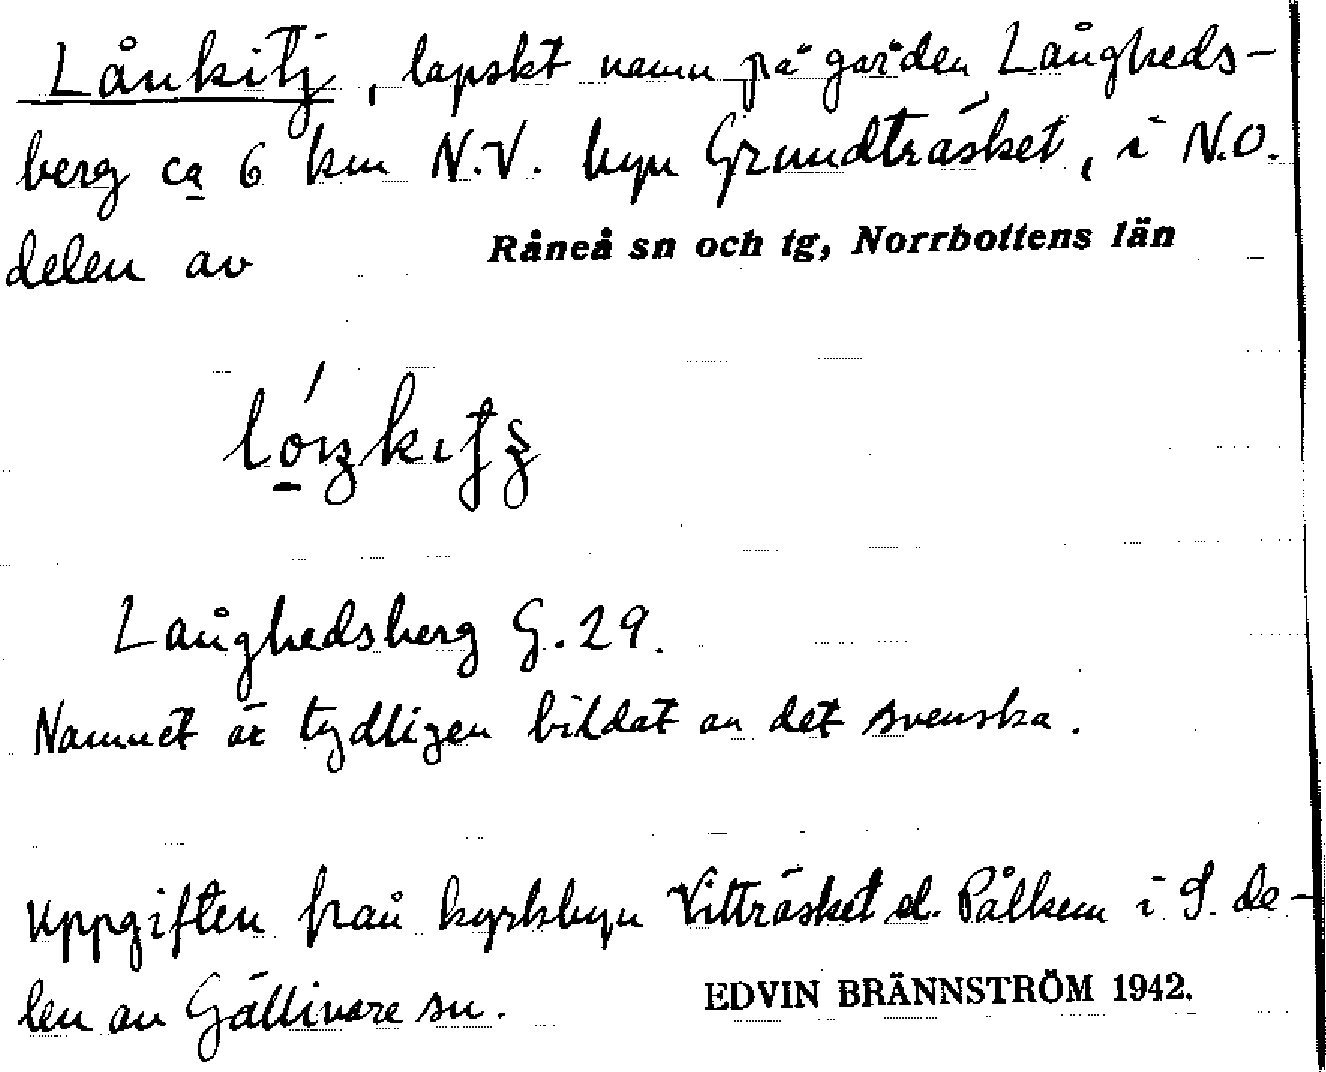 Lånkitj, lapskt namn på gården Långheds-
berg ca 6 km N.V. byn Grundträsket, i N.O.
delen av Råneå sn och tg, Norrbottens län
Långhedsberg G. 29.
Namnet är tydligen bildat av det svenska.
Uppgiften från kyrkbyn Vitträsket el. Pålkem i S. de-
len av Gällivare sn. EDVIN BRÄNNSTRÖM 1942.